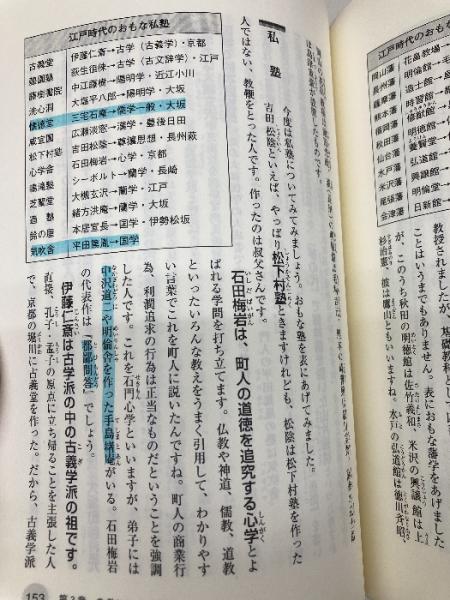 教授されましたが、基礎教科として
ことはいうまでもありません。表におもな藩学をあげました
が、このうち秋田の明徳館は佐竹義和、米沢の興譲館は上
杉治憲、彼は鷹山ともいいますね。水戸の弘道館は徳川斉昭、
江戸時代のおも
岡山藩 花畠教場→
長州藩 明倫館→
薩摩藩 造士館→
熊本藩 時習館→
福岡藩 修猷館→
秋田藩 明徳館→
仙台藩 養賢堂→
米沢藩 興譲館→
水戸藩 弘道館→
尾張藩 明倫堂→
会津藩 日新館→
は島津重豪が設置したものです。
私塾
今度は私塾についてみてみましょう。おもな塾を表にあげてみました。
吉田松陰といえば、やっぱり松下村塾ときますけれども、松陰は松下村塾を作った
人ではない、教鞭をとった人です。作ったのは叔父さんです。
石田梅岩は、町人の道徳を追究する心学とよ
ばれる学問を打ち立てます。仏教や神道、儒教、道教
といったいろんな教えをうまく引用して、わかりやす
い言葉でこれを町人に説いたんですね。町人の商業行
為、利潤追求の行為は正当なものだということを強調
した人です。これを石門心学といいますが、弟子には
中沢道二や明倫舎を作った手島堵庵がいる。石田梅岩
の代表作は『都鄙問答』でしょう。
伊藤仁斎は古学派の中の古義学派の祖です。
直接、孔子・孟子の原点に立ち帰ることを主張した人
で、京都の堀川に古義堂を作った。だから、古義学派
江戸時代のおもな私塾
古義堂 伊藤仁斎→古学（古義学）・京都
蘐園塾 荻生徂徠→古学（古文辞学）・江戸
藤樹書院 中江藤樹→陽明学・近江小川
洗心洞 大塩平八郎→陽明学・大坂
懐徳堂 三宅石庵→儒学一般・大坂
咸宜園 広瀬淡窓→漢学・豊後日田
松下村塾 吉田松陰→尊攘思想・長州萩
心学舎 石田梅岩→心学・京都
鳴滝塾 シーボルト→蘭学・長崎
芝蘭堂 大槻玄沢→蘭学・江戸
適塾 緒方洪庵→蘭学・大坂
鈴の屋 本居宣長→国学・伊勢松坂
気吹舎 平田篤胤→国学
153 第3章